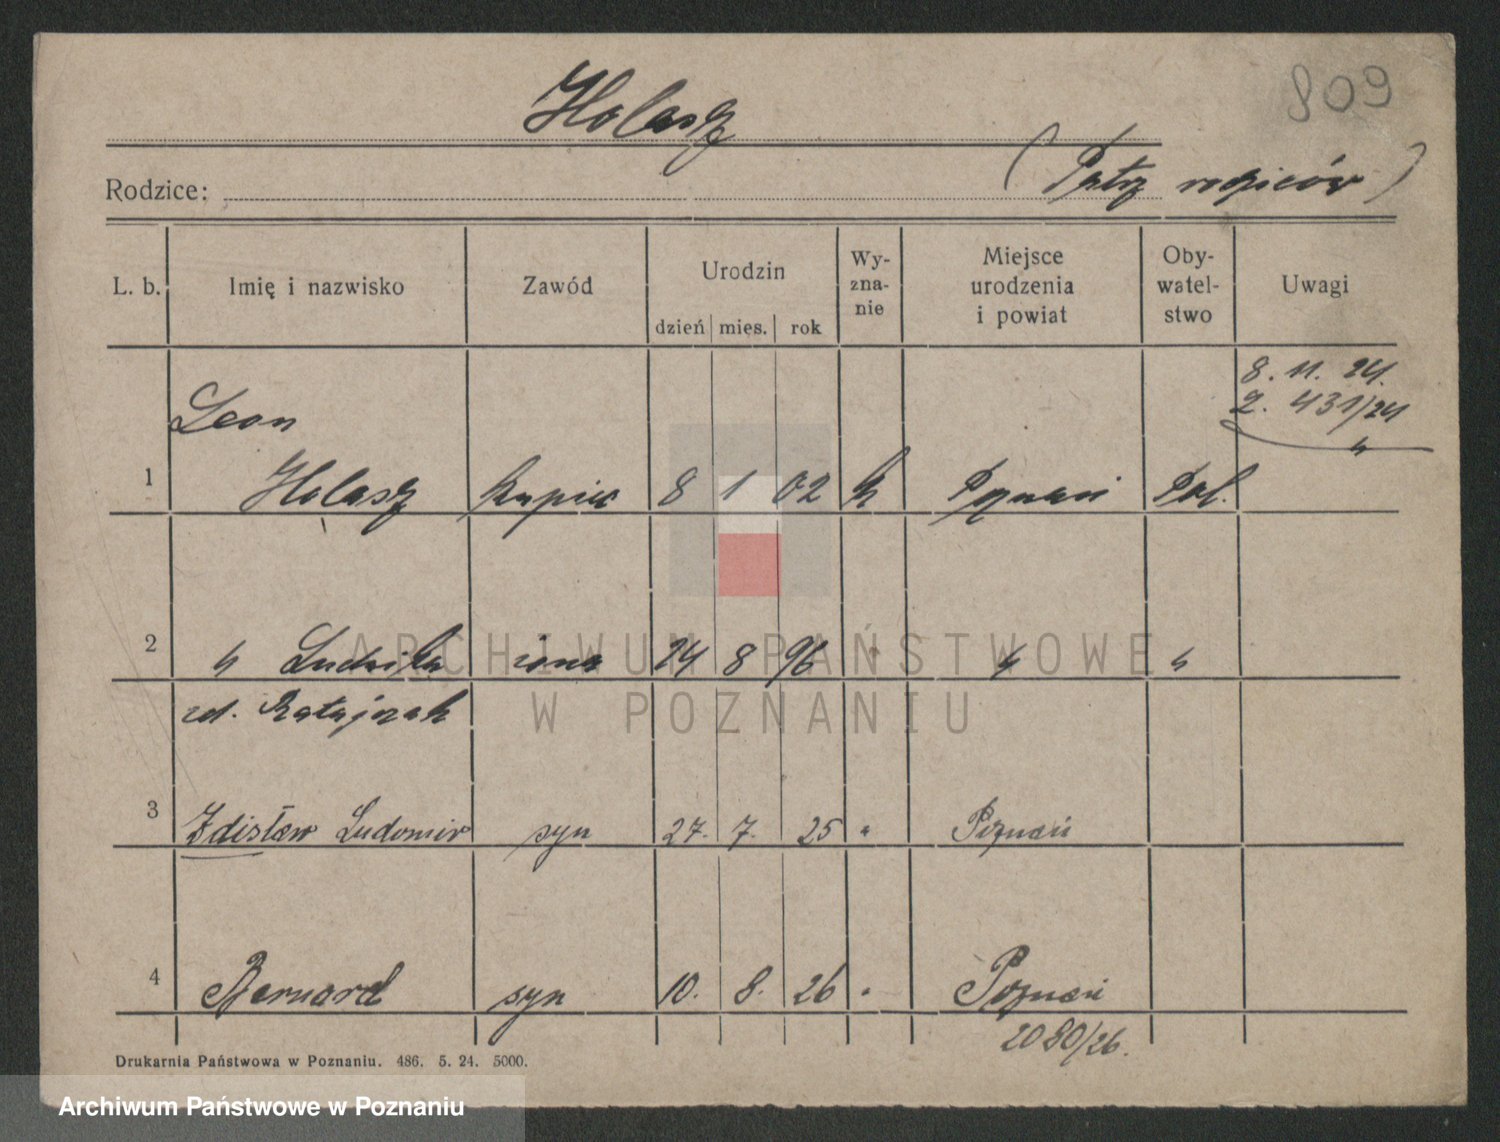 809
Holasz
Rodzice: (Patrz rodziców)
L. b. Imię i nazwisko Zawód Urodzin dzień mies. rok Wy- zna- nie Miejsce urodzenia i powiat Oby- watel- stwo Uwagi
8. 11. 24.
2. 431/24
Leon
1 Holasz kupiec 8 1 02 k Poznań Pol.
2 " Ludwika żona 24 8 96 " " "
zd. Ratajczak
3 Zdisław Ludomir syn 27. 7. 25 " Poznań
4 Bernard syn 10. 8. 26 " Poznań
2080/26.
Drukarnia Państwowa w Poznaniu. 486. 5. 24. 5000.
ARCHIWUM PAŃSTWOWE
W POZNANIU
Archiwum Państwowe w Poznaniu